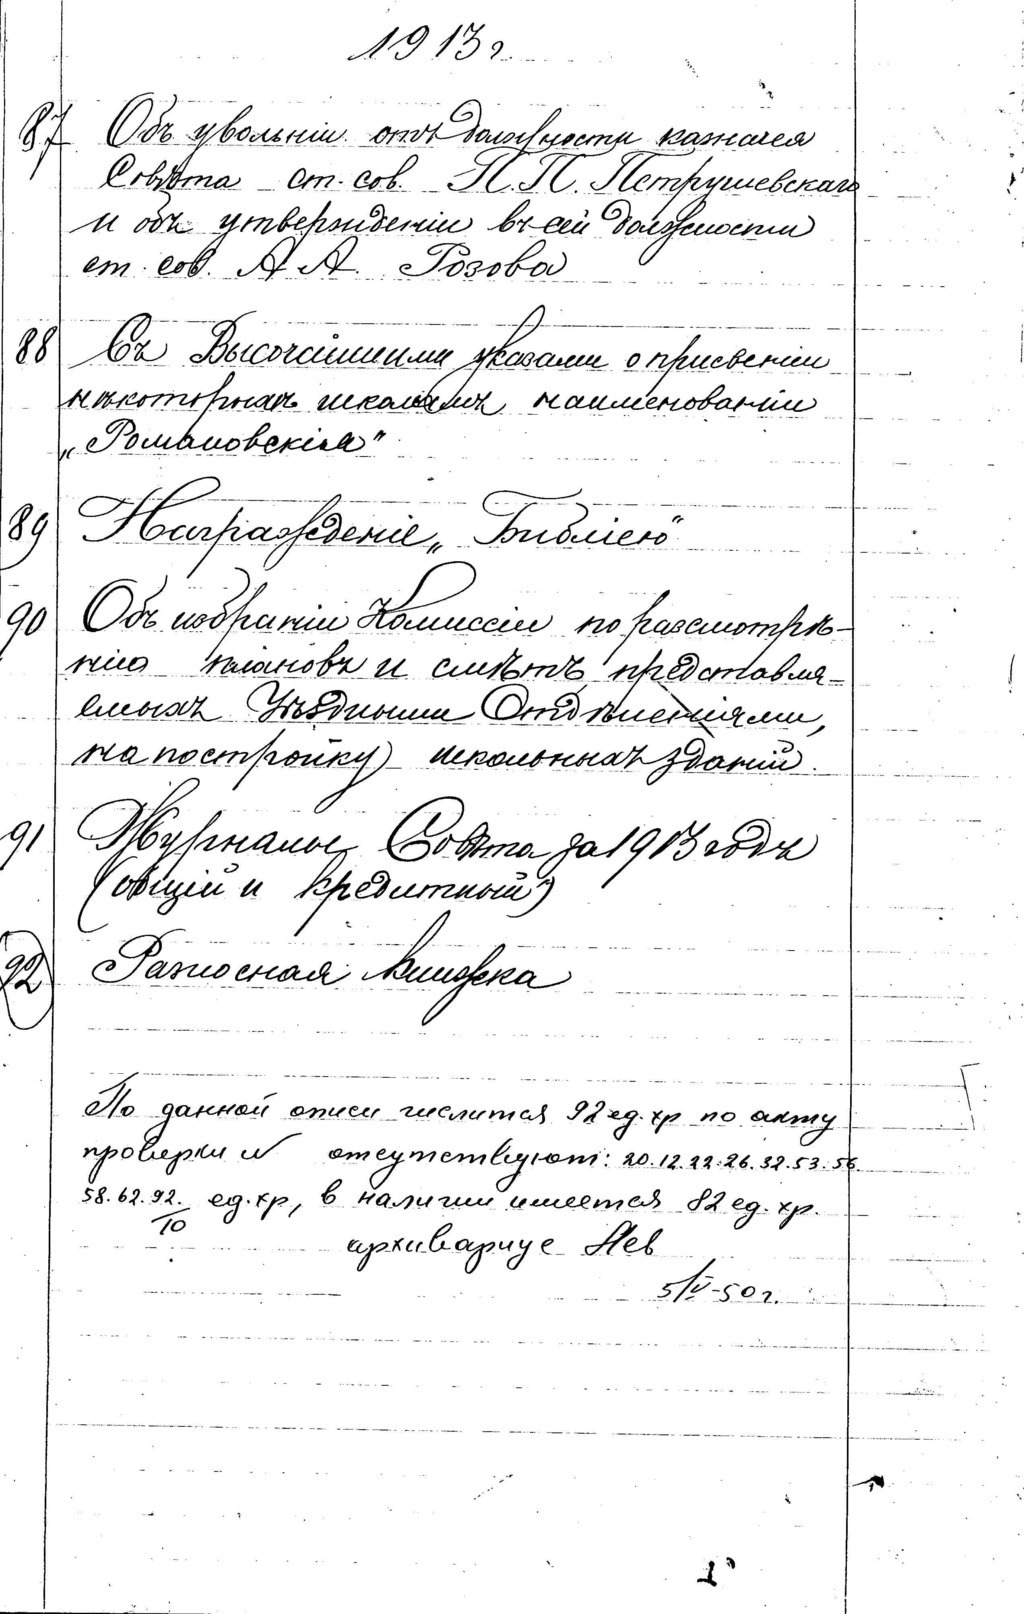 1913 г.
87 Объ увольніи отъ должности казначея
Совѣта ст. сов. П. П. Петрушевскаго
и объ утвержденіи въ сей должности
ст. сов. А. А. Розова
88 Съ Высочайшими указами о присвеніи
нѣкоторымъ школамъ наименованіи
„Романовскія"
89 Награжденіе „Библіею"
90 Объ избраніи Комиссіи по разсмотрѣ-
нію плановъ и смѣтъ представля-
емыхъ Уѣздными Отдѣленіями,
на постройку школьныхъ зданій.
91 Журналы Совѣта за 1913 годъ
(общій и кредитный)
92 Разносная книжка
По данной описи числится 92 ед. хр по акту
проверки № отсутствуют: 20. 12. 22. 26. 32. 53. 56.
58. 62. 92. ед. хр, в наличии имеется 82 ед. хр.
10
архивариус
5/V-50 г.